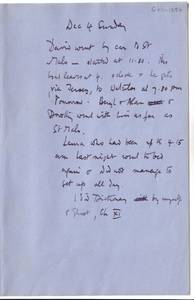 Dec 4 Sunday
David went by car to St
Malo – started at 11.30. This
boat leaves at 4. o'clock & he gets
via Jersey, to at 7.30 pm
tomorrow. Beryl & Alan &
Dorothy went with him as far as
St Malo.
Lena who had been up till 4.15
am last night went to bed
again & did not manage to
get up all day.
I did Dictionary by myself
& Ghost, Ch XI